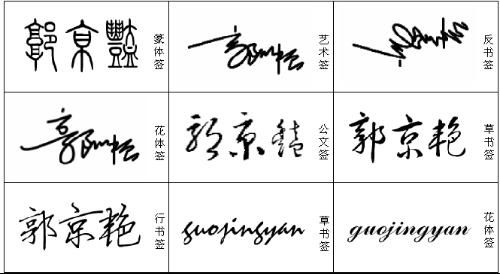 郭京艷 篆体签
郭京艳 艺术签
反书签
郭京艳 花体签
郭京艷 公文签
郭京艳 草书签
郭京艳 行书签
guojingyan 草书签
guojingyan 花体签